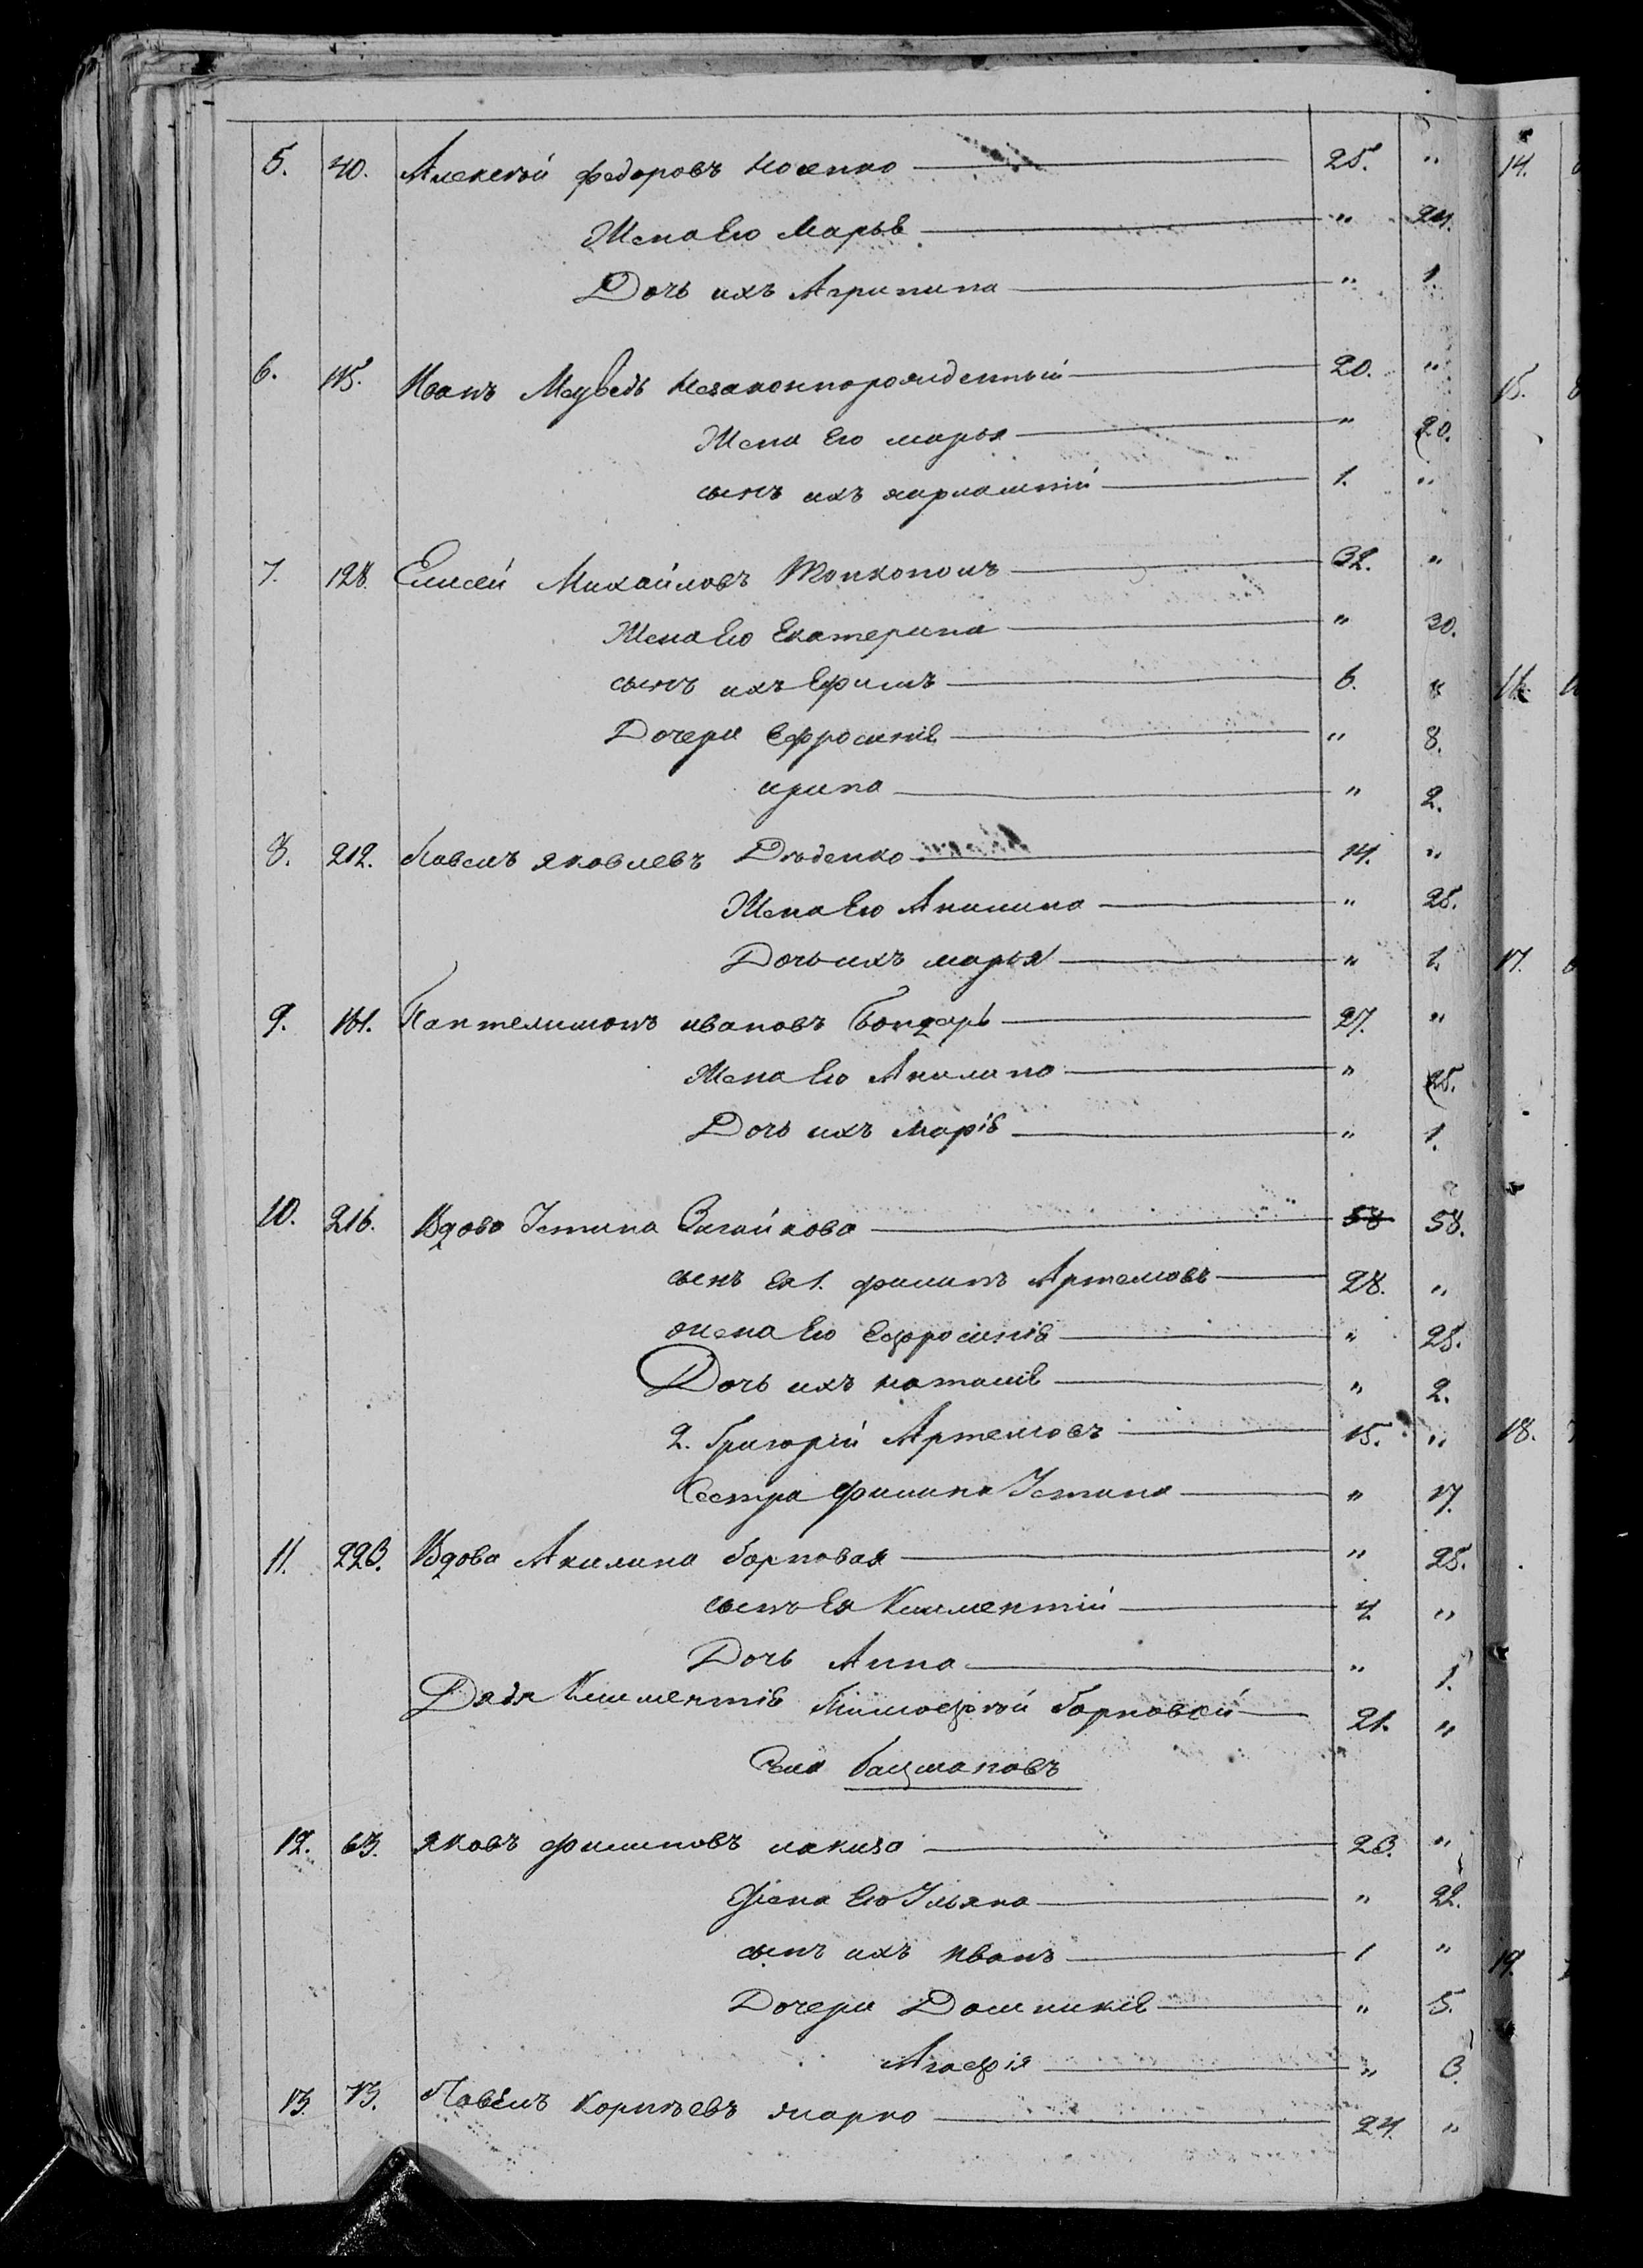 5. 40. Алексѣй Федоровъ Носенко 25. "
Жена Его Марьѣ " 24.
Дочь ихъ Агрипина " 1.
6. 115. Иванъ Медведь Незаконнорожденный 20. "
Жена Его марья " 20.
сынъ ихъ харлампій 1. "
7. 128. Елисей Михайловъ Тонконогъ 32. "
Жена Его Екатерина " 30.
сынъ ихъ Ефимъ 6. "
Дочери Ефросиніѣ " 8.
ирина " 2.
8. 212. Павелъ яковлевъ Дѣденко "
Жена Его Акилина " 25.
Дочь ихъ марья " 1.
9. Пантелимонъ ивановъ Бондарь 27. "
Жена Его Акилина " 25.
Дочь ихъ Маріѣ " 1.
10. 216. Вдова Устина 58 58.
сынъ Ея 1. филипъ Артемовъ 28. "
жена Его Ефросиніѣ " 25.
Дочь ихъ наталіѣ " 2.
2. Григорій Артемовъ 15. "
Сестра Филипа Устина " 17.
11. 223. Вдова Акилина Горновая " 25.
сынъ Ея Климентій 4. "
Дочь Анна " 1.
Дядя Климентіѣ Тимофѣй Горновой 21. "
Села Бацмановъ
12. 63. яковъ филиповъ лакиза 23. "
Жена Его Ульяна " 22.
сынъ ихъ Иванъ 1 "
Дочери Домникіѣ " 5.
Агафія " 3.
13. 73. Павелъ Корнѣевъ жарко 24. "
14.
15.
16.
17.
18.
19.